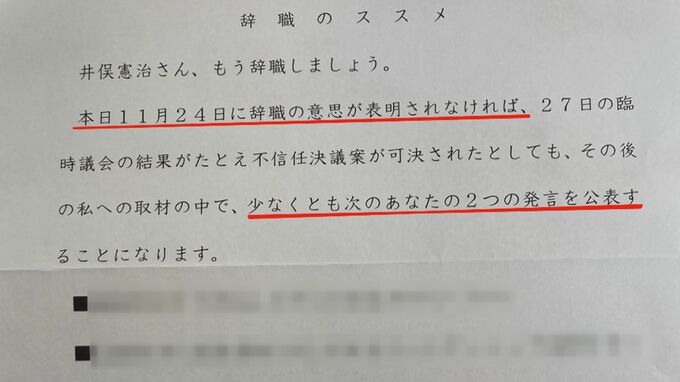 辞職のススメ
井俣憲治さん、もう辞職しましょう。
本日１１月２４日に辞職の意思が表明されなければ、２７日の臨
時議会の結果がたとえ不信任決議案が可決されたとしても、その後
の私への取材の中で、少なくとも次のあなたの２つの発言を公表す
ることになります。
■
■